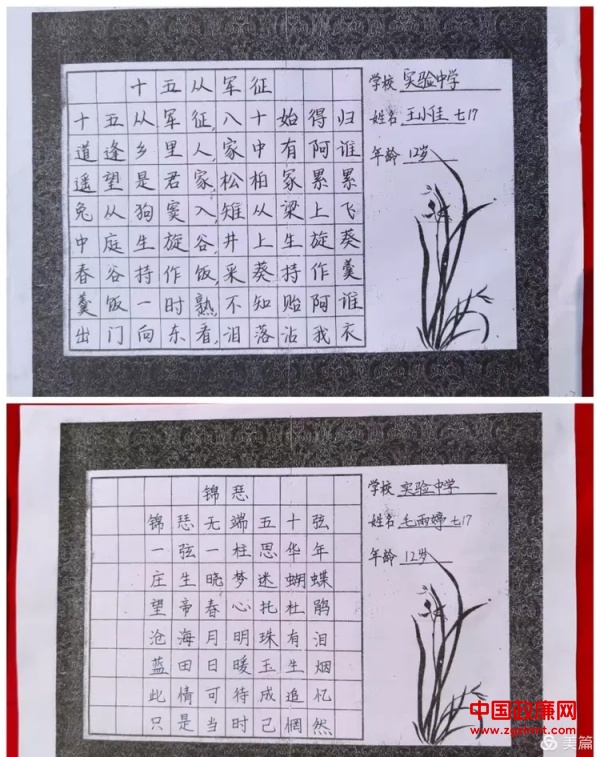 十五从军征
十五从军征,八十始得归
道逢乡里人,家中有阿谁
遥望是君家,松柏冢累累
兔从狗窦入,雉从梁上飞
中庭生旋谷,井上生旋葵
舂谷持作饭,采葵持作羹
羹饭一时熟,不知贻阿谁
出门向东看,泪落沾我衣
学校 实验中学
姓名 王小佳 七17
年龄 12岁
锦瑟
锦瑟无端五十弦
一弦一柱思华年
庄生晓梦迷蝴蝶
望帝春心托杜鹃
沧海月明珠有泪
蓝田日暖玉生烟
此情可待成追忆
只是当时已惘然
学校 实验中学
姓名 毛雨婷 七17
年龄 12岁
中国政廉网
www.zgzlmt.com
美篇